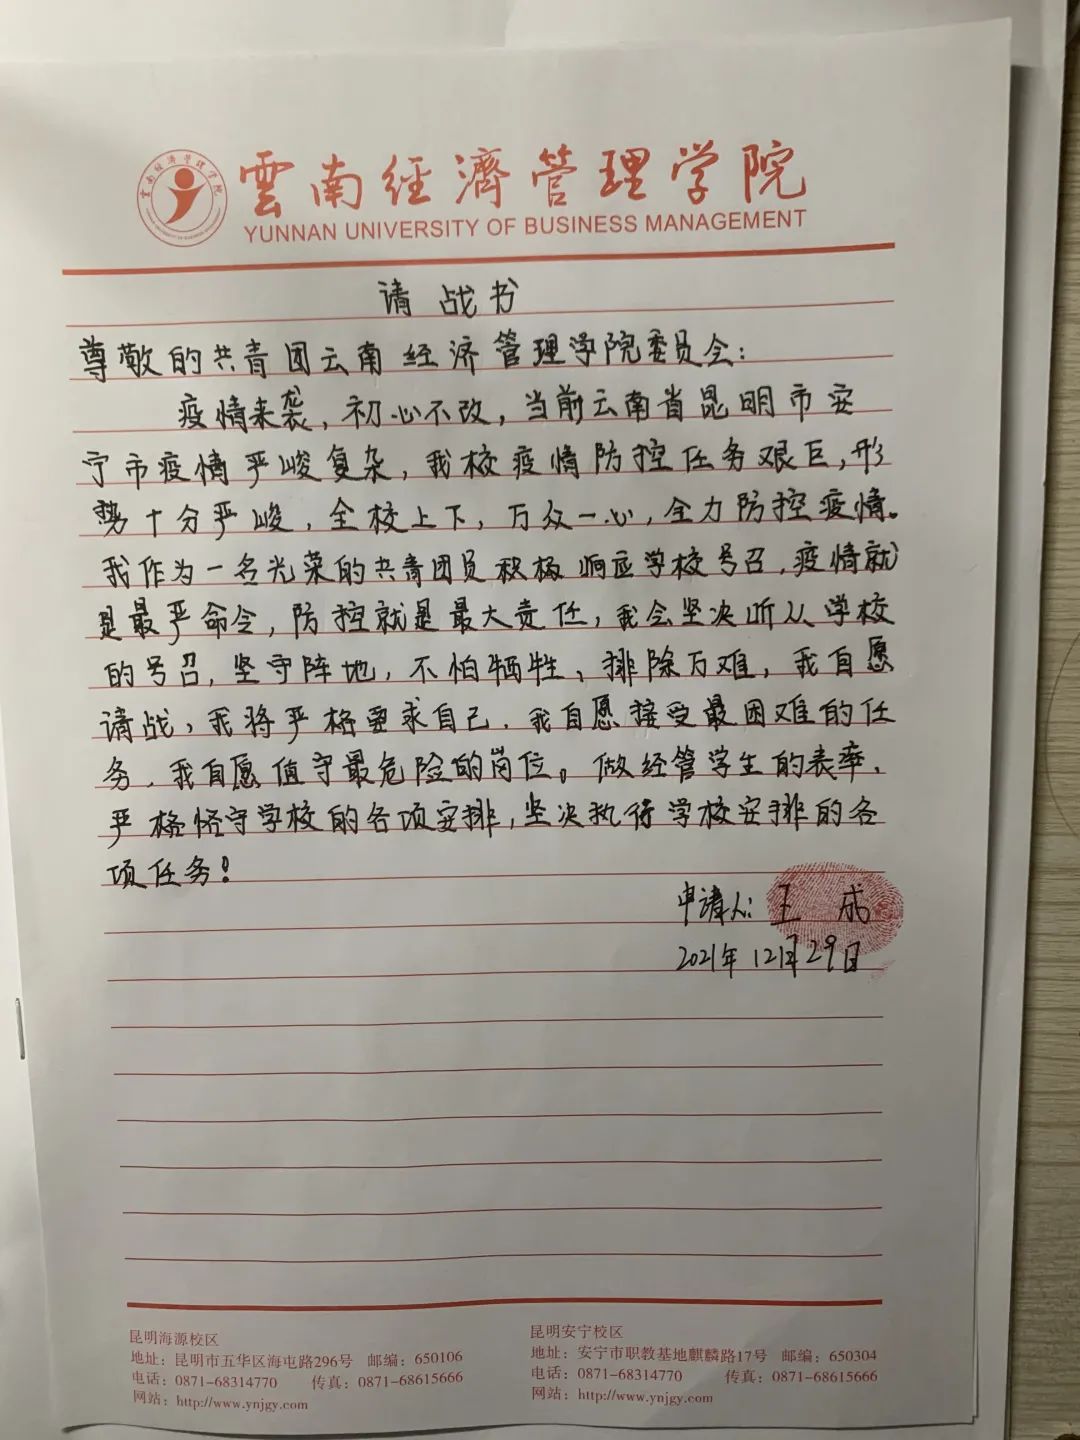 雲南經濟管理学院
YUNNAN UNIVERSITY OF BUSINESS MANAGEMENT
请战书
尊敬的共青团云南经济管理学院委员会：
疫情来袭，初心不改，当前云南省昆明市安
宁市疫情严峻复杂，我校疫情防控任务艰巨，形
势十分严峻，全校上下，万众一心，全力防控疫情。
我作为一名光荣的共青团员积极响应学校号召，疫情就
是最严命令，防控就是最大责任，我会坚决听从学校
的号召，坚守阵地，不怕牺牲、排除万难，我自愿
请战，我将严格要求自己，我自愿接受最困难的任
务，我自愿值守最危险的岗位。做经管学生的表率，
严格恪守学校的各项安排，坚决执行学校安排的各
项任务！
申请人：王 成
2021年12月29日
昆明海源校区
地址：昆明市五华区海屯路296号 邮编：650106
电话：0871-68314770 传真：0871-68615666
网站：http://www.ynjgy.com
昆明安宁校区
地址：安宁市职教基地麒麟路17号 邮编：650304
电话：0871-68314770 传真：0871-68615666
网站：http://www.ynjgy.com